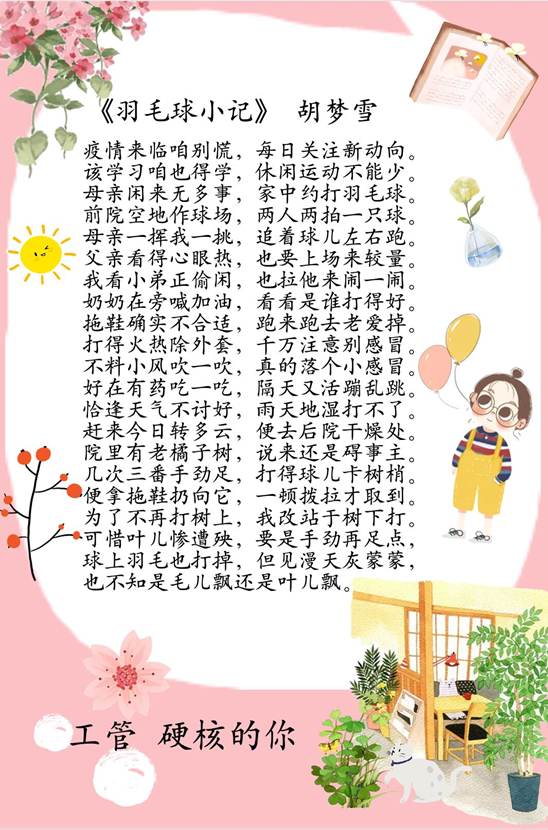 《羽毛球小记》 胡梦雪
疫情来临咱别慌，每日关注新动向。
该学习咱也得学，休闲运动不能少。
母亲闲来无多事，家中约打羽毛球。
前院空地作球场，两人两拍一只球。
母亲一挥我一挑，追着球儿左右跑。
父亲看得心眼热，也要上场来较量。
我看小弟正偷闲，也拉他来闹一闹。
奶奶在旁喊加油，看看是谁打得好。
拖鞋确实不合适，跑来跑去老爱掉。
打得火热除外套，千万注意别感冒。
不料小风吹一吹，真的落个小感冒。
好在有药吃一吃，隔天又活蹦乱跳。
恰逢天气不讨好，雨天地湿打不了。
赶来今日转多云，便去后院干燥处。
院里有老橘子树，说来还是碍事主。
几次三番手劲足，打得球儿卡树梢。
便拿拖鞋扔向它，一顿拨拉才取到。
为了不再打树上，我改站于树下打。
可惜叶儿惨遭殃，要是手劲再足点，
球上羽毛也打掉，但见漫天灰蒙蒙，
也不知是毛儿飘还是叶儿飘。
工管 硬核的你